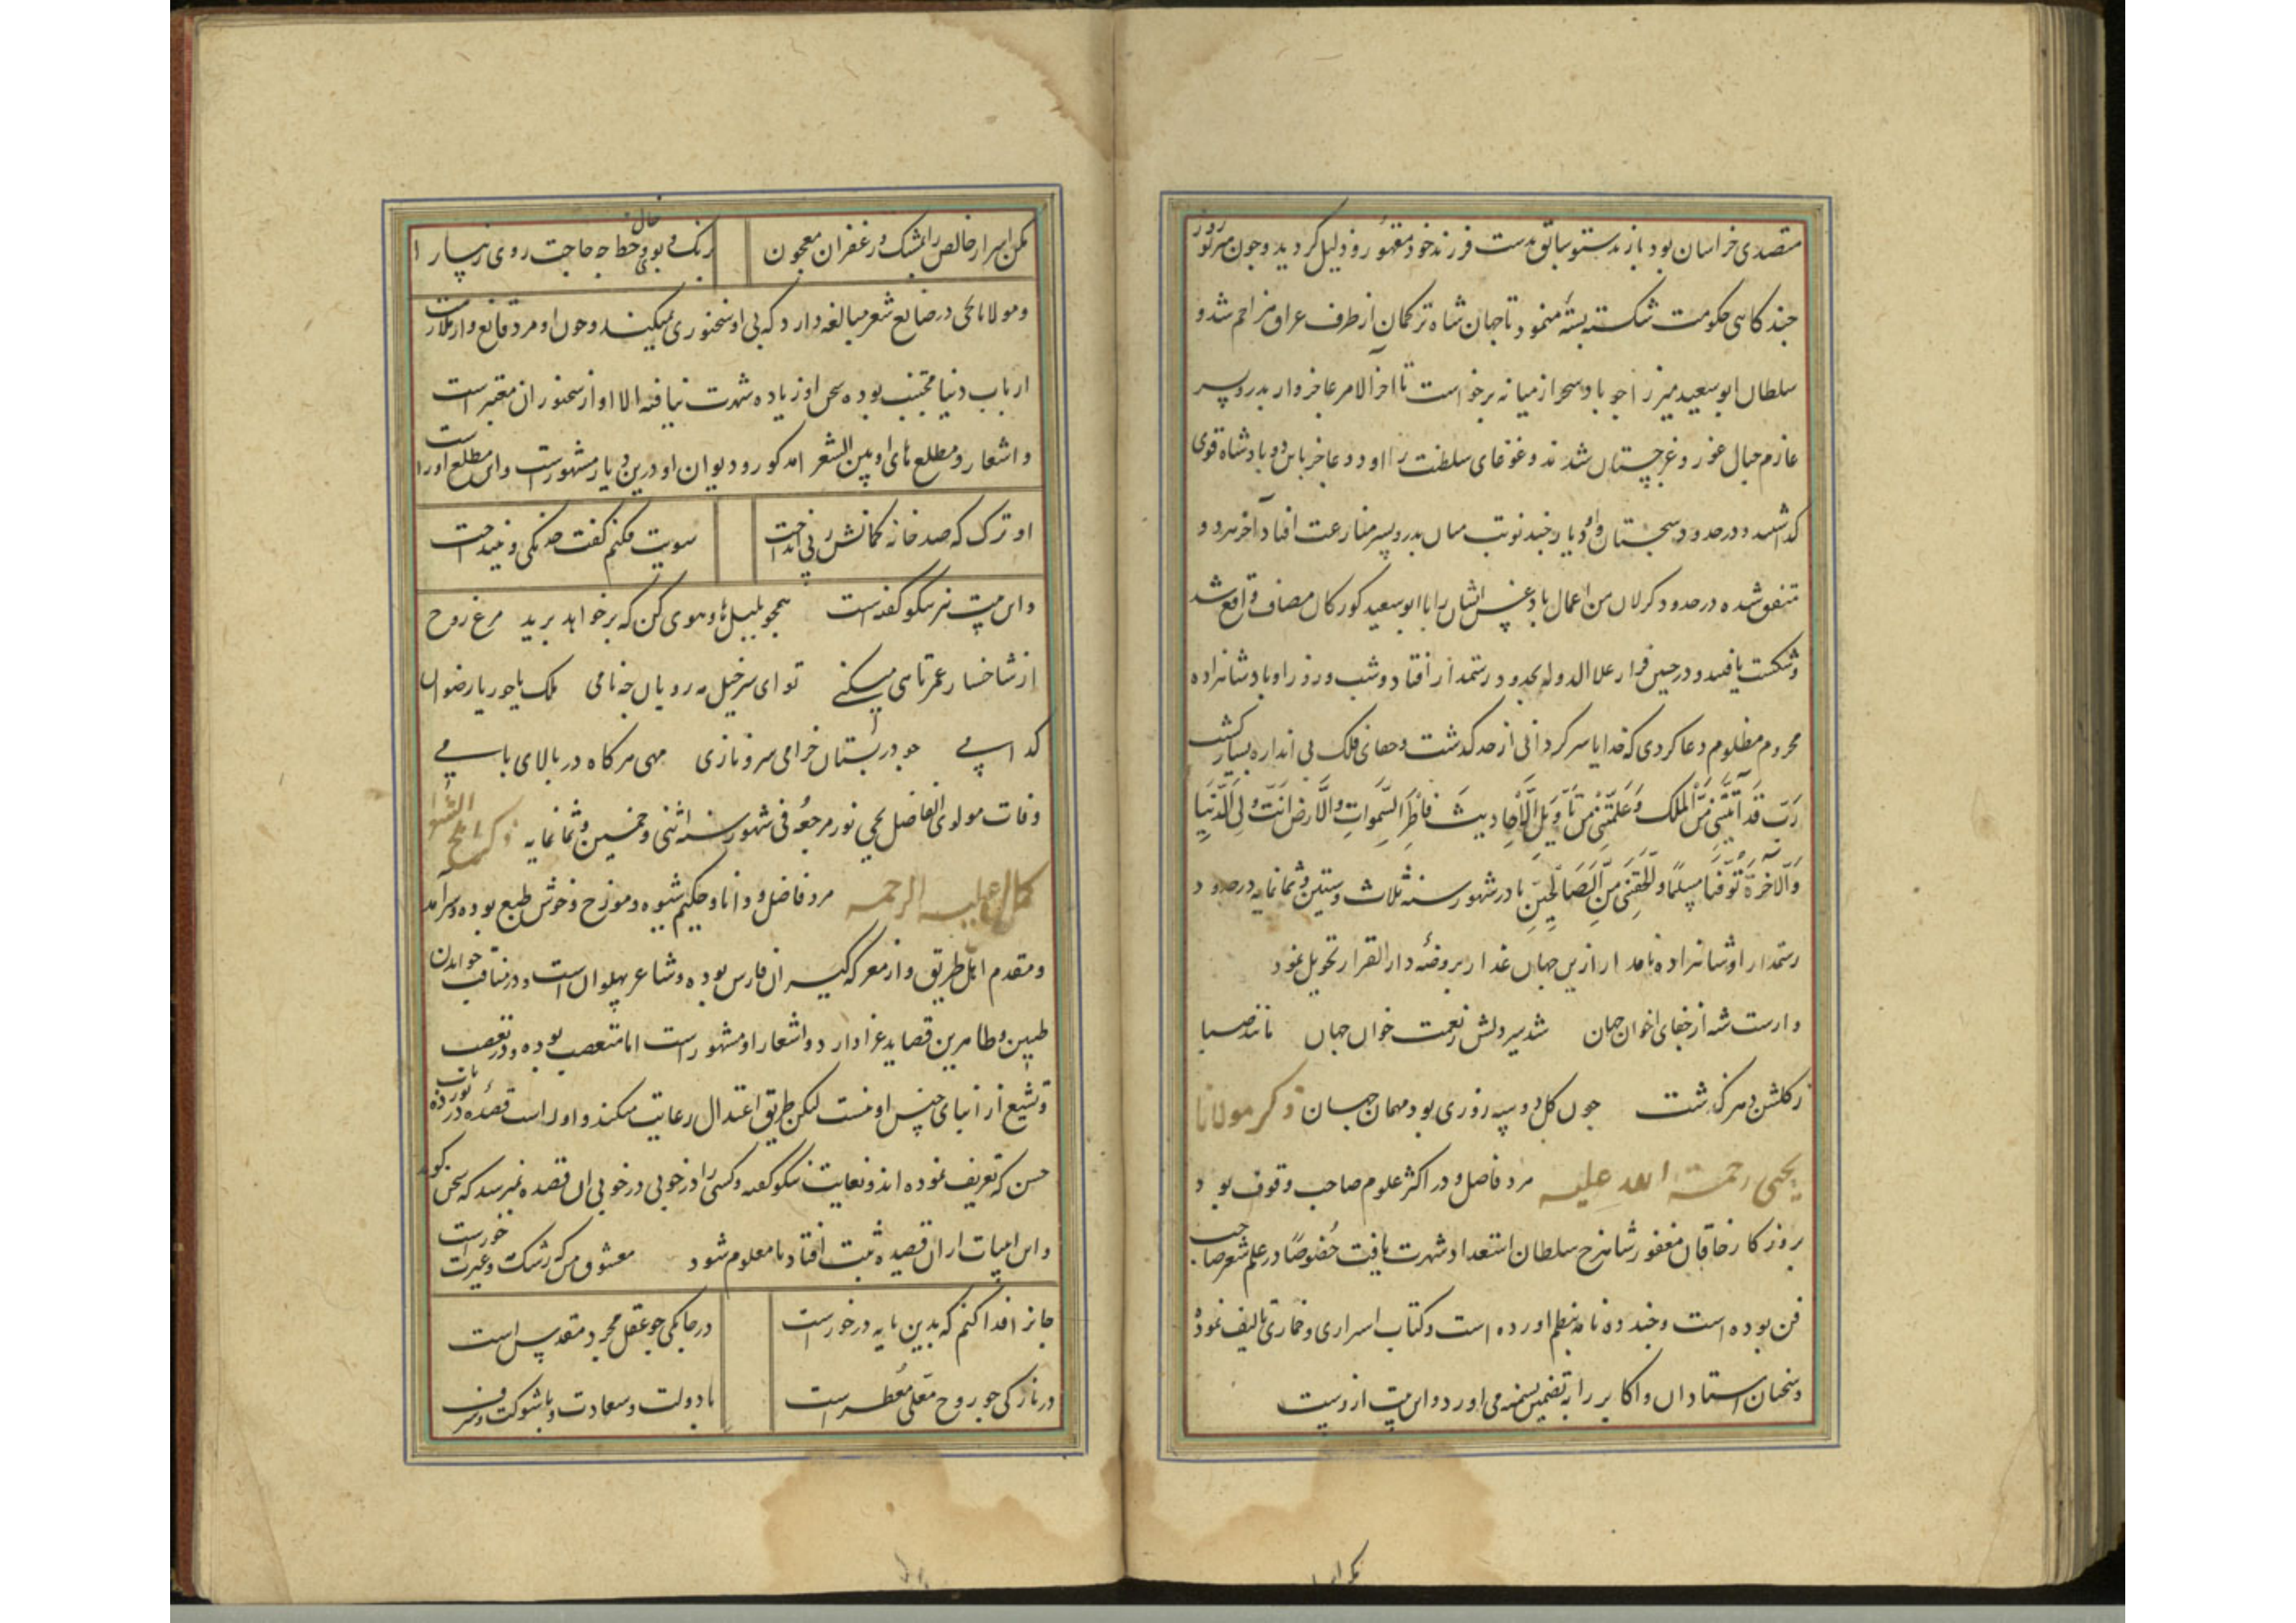 متصدی خراسان بود باز بدستو سابق بدست فرزند خود مقهور و ذلیل کردید و چون
چند کاهی حکومت شکسته بسته مینمود تا جهان شاه ترکمان از طرف عراق مزاحم شد و
سلطان ابو سعید میرزا چو باد سحر از میانه برخواست تا اخر الامر عاجزوار پدر و پسر
عازم جبال غور و غرجستان شدند و غوغای سلطنت را او دو عاجز باین دو پادشاه قوی
کذاشتند و در حدود سجستان و ان دیار چند نوبت میان پدر و پسر منازعت افتاد آخر هر دو
متفق شده در حدود کرلان من اعمال بادغیس ایشان را با ابو سعید کورکان مصاف واقع شد
و شکست یافتند و در حین فرار علاالدوله بحدود رستمدار افتاد و شب و روز او پادشاهزاده
محروم مظلوم دعا کردی که خدایا سرکردانی از حد کذشت و جفای فلک بی اندازه بسیار کشت
رَبِّ قَد اٰتَیتَنی مِنَ المُلکِ وَعَلَّمتَنی مِن تَأویلِ الاَحادیثِ فاطِرَ السَّمواتِ وَالاَرضِ اَنتَ وَلِی فِی الدُّنیا
وَالاٰخِرَة تَوَفَّنی مُسلِمًا وَاَلحِقنی بِالصّالِحینَ تا در شهور سنه ثلاث و ستین و ثمانمایه در حدود
رستمدار او شاهزاده نامدار ازین جهان غدار بروضه دار القرار تحویل نمود
وارست شه از جفای اخوان جهان شد سیر دلش ز نعمت خوان جهان مانند صبا
ز کلشن دهر کذشت چون کل دو سه روزی بود مهمان جهان ذکر مولانا
یحیی رحمة الله علیه مرد فاضل و در اکثر علوم صاحب وقوف بود و
بروز کار خاقان مغفور شاهرخ سلطان استعداد شهرت یافت خصوصًا در علم شعر صاحب
فن بوده است و چند ده نامه بنظم اورده است و کتاب اسراری و خماری تالیف نموده
و سخنان استادان و اکابر را به تضمین می اورد و این بیت ازوست
مکن اسرار خالص را بمشک و زعفران معجون برنک و بوی و خال و خط چه حاجت روی زیبا را
و مولانا یحیی در صنایع شعر مبالغه دارد که بی او سخنوری نمیکند و چون او مرد قانع و از ملازمت
ارباب دنیا مجتنب بوده سخن او زیاده شهرت نیافته الا او از سخنوران معتبر است
و اشعار و مطلع های او بین الشعرا مذکور و دیوان او درین دیار مشهورست و این مطلع اوراست
او ترک که صد خانه کمانش ز پی انداخت سویت فکنم کفت خدنکی و نینداخت
و این بیت نیز نیکو کفته است همچو بلبل های و هوی کن که بر خواهد پرید مرغ روح
از شاخسار عمر تا هی میکنی تو ای سرخیل مه رویان چه نامی ملک یا حور یا رضوان
کدامی چو در بستان خرامی سرو نازی مهی هر کاه در بالای بامی
وفات مولوی الفاضل یحیی نور مرجعُه فی شهور سنه اثنی و خمسین و ثمانمایه ذکر املح الشعرا
کمال علیه الرحمه مرد فاضل و دانا و حکیم شیوه و مورخ و خوش طبع بوده و سرآمد
و مقدم اهل طریق و از معرکه کیران فارس بوده و شاعر پهلوان است و در مناقب خواندن
طیبین و طاهرین قصاید غرا دارد و اشعار او مشهور است اما متعصب بوده و در تعصب
و تشیع از انبای جنس او نیست لیکن طریق اعتدال رعایت میکند و اوراست قصیده در
حسن که تعریف نموده اند و بغایت نیکو کفته و کسی را در خوبی ان قصیده نمیرسد که سخن کوید
و این ابیات از ان قصیده ثبت افتاد تا معلوم شود معشوق من که رشک و غیرت خورست
جانرا فدا کنم که بدین مایه درخورست در چابکی چو عقل مجرد مقدس است
در نازکی چو روح معلی معطر است با دولت و سعادت و با شوکت و شرف